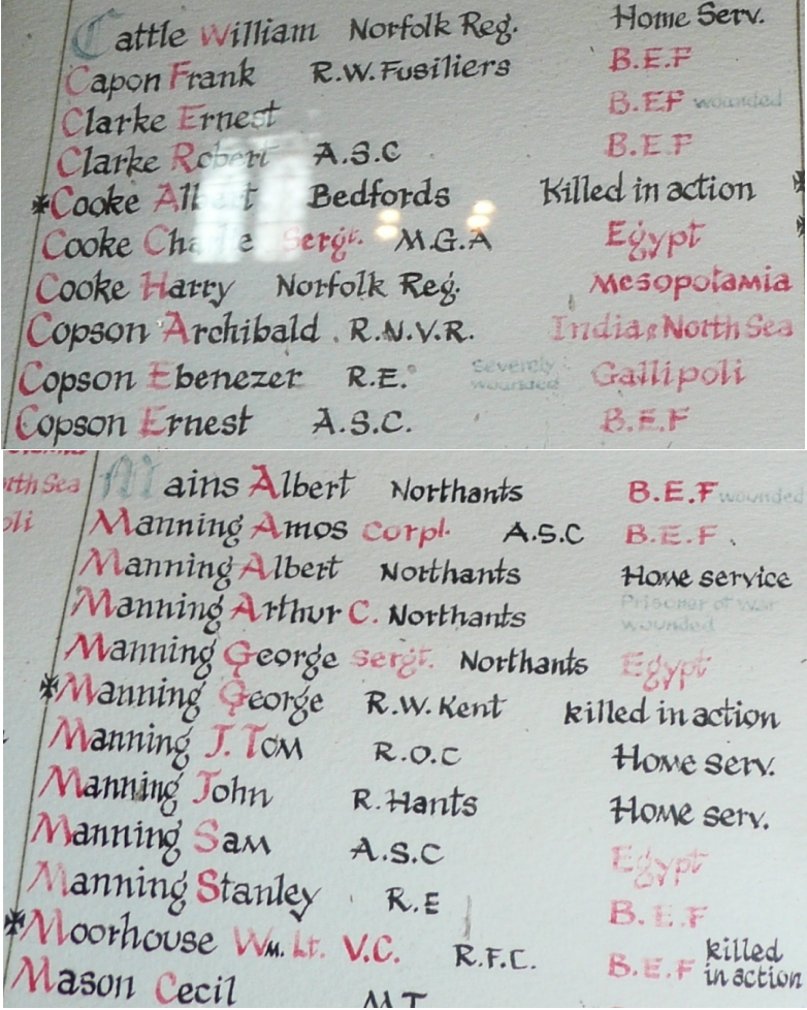 Cattle William Norfolk Reg. Home Serv.
Capon Frank R.W.Fusiliers B.E.F
Clarke Ernest B.EF wounded
Clarke Robert A.S.C B.E.F
Cooke Albert Bedfords Killed in action
Cooke Charlie Sergt. M.G.A Egypt
Cooke Harry Norfolk Reg. Mesopotamia
Copson Archibald. R.N.V.R. India & North Sea
Copson Ebenezer R.E. Severely wounded Gallipoli
Copson Ernest A.S.C. B.E.F
rth Sea
oli
Mains Albert Northants B.E.F wounded
Manning Amos Corpl. A.S.C B.E.F.
Manning Albert Northants Home service
Manning Arthur C. Northants Prisoner of war wounded
Manning George Sergt. Northants Egypt
Manning George R.W.Kent killed in action
Manning J. Tom R.O.C Home serv.
Manning John R.Hants Home serv.
Manning Sam A.S.C Egypt
Manning Stanley R.E B.E.F
Moorhouse Wm. Lt. V.C. R.F.C. B.E.F killed in action
Mason Cecil M.T